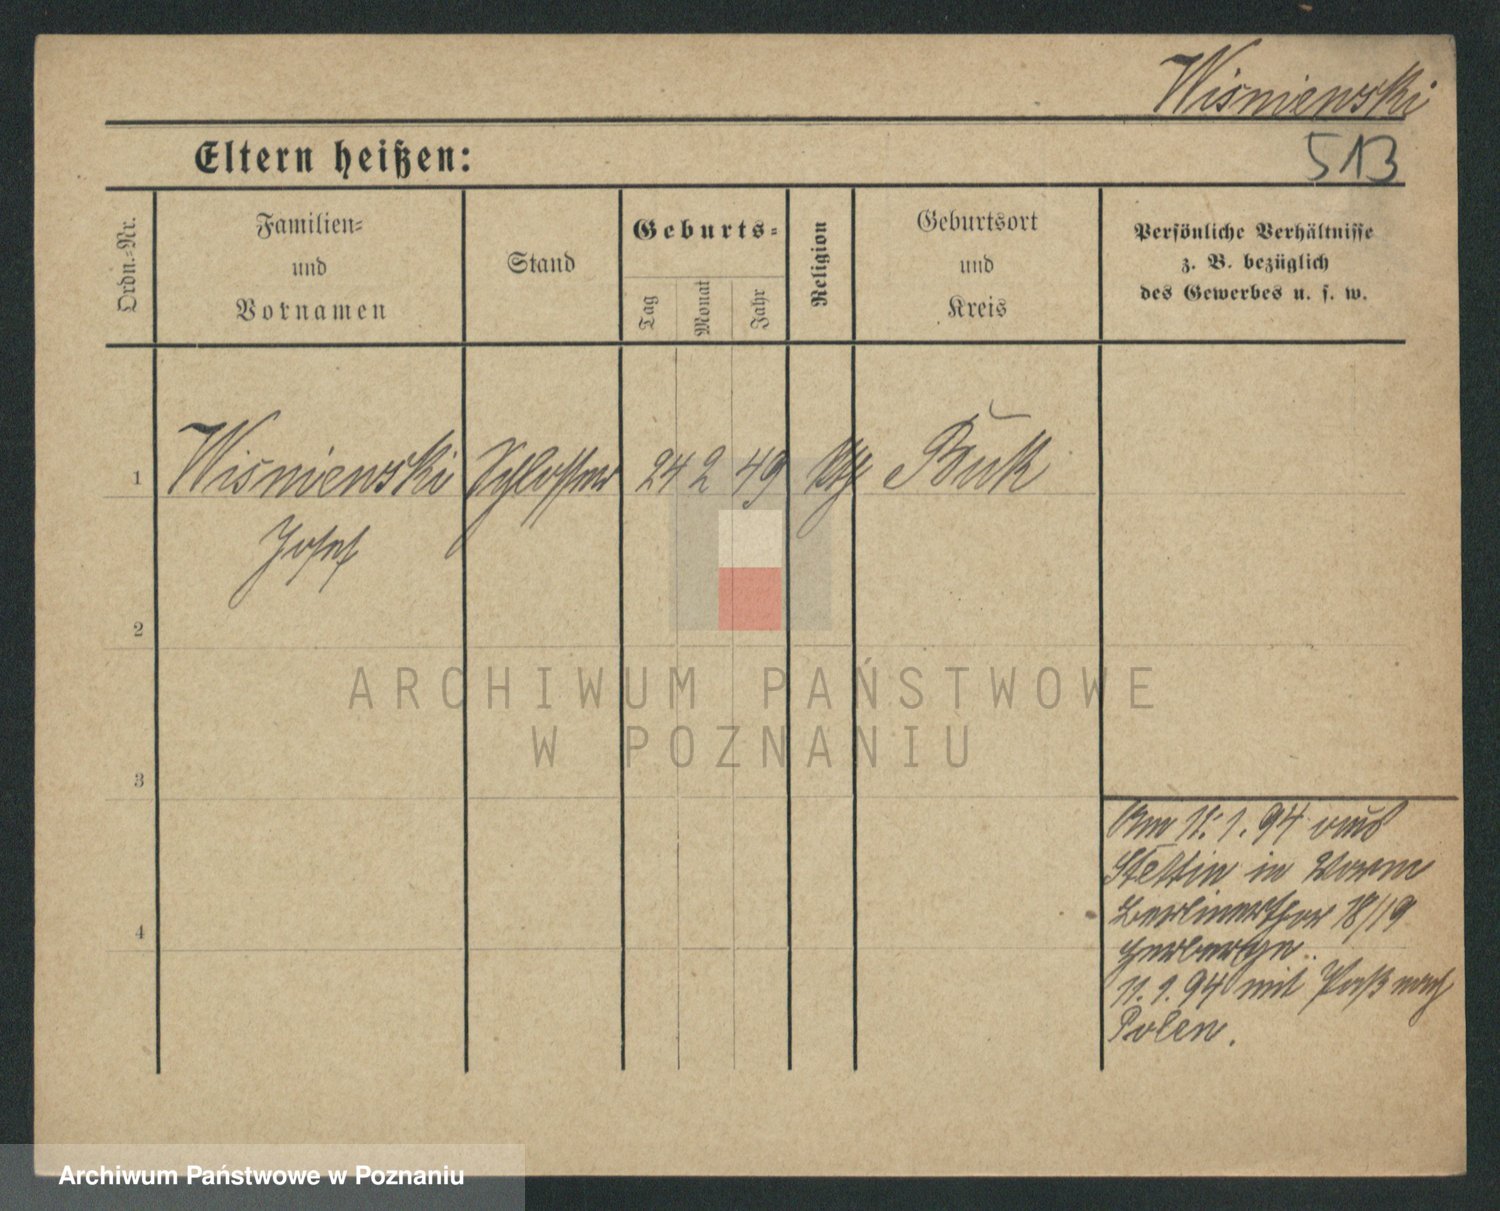 Wisniewski
Eltern heißen:
513
Ordn.-Nr.
Familien-
und
Vornamen
Stand
Geburts-
Tag
Monat
Jahr
Religion
Geburtsort
und
Kreis
Persönliche Verhältnisse
z. B. bezüglich
des Gewerbes u. s. w.
1 Wisniewski Schlosser 24 2 49 kth Buk
Josef
2
3
4
Am 11. 1. 94 aus
Stettin in
Berlinerthor 18/19
Herberge.
11. 1. 94 mit Paß nach
Polen.
ARCHIWUM PAŃSTWOWE
W POZNANIU
Archiwum Państwowe w Poznaniu